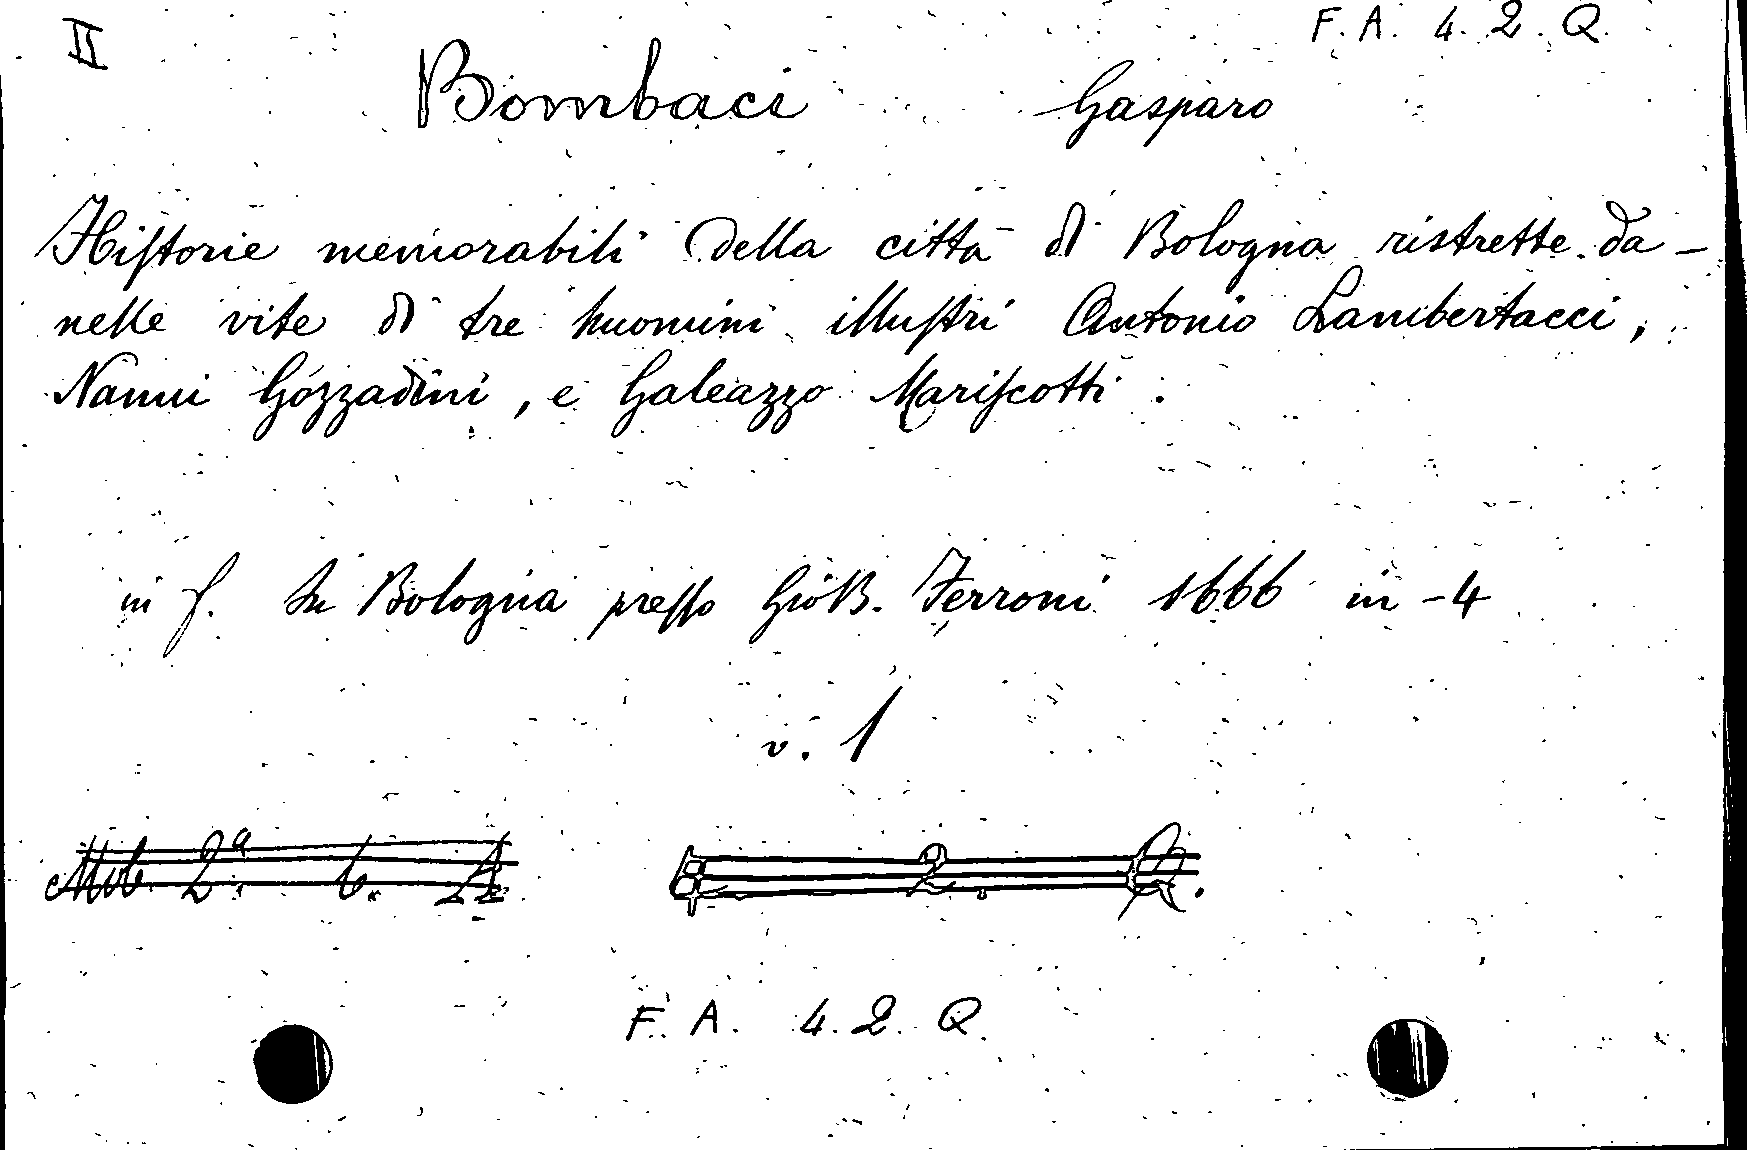 II
F. A. 4. 2. Q.
Bombaci Gasparo
Historie memorabili della città di Bologna ristrette da-
nelle vite di tre huomini illustri Antonio Lambertacci,
Nanni Gozzadini, e Galeazzo Mariscotti.
in f. In Bologna presso Gio B. Ferroni 1666 in-4
v. 1
Mob. 2ª. 6.
2. Q.
F. A. 4. 2. Q.